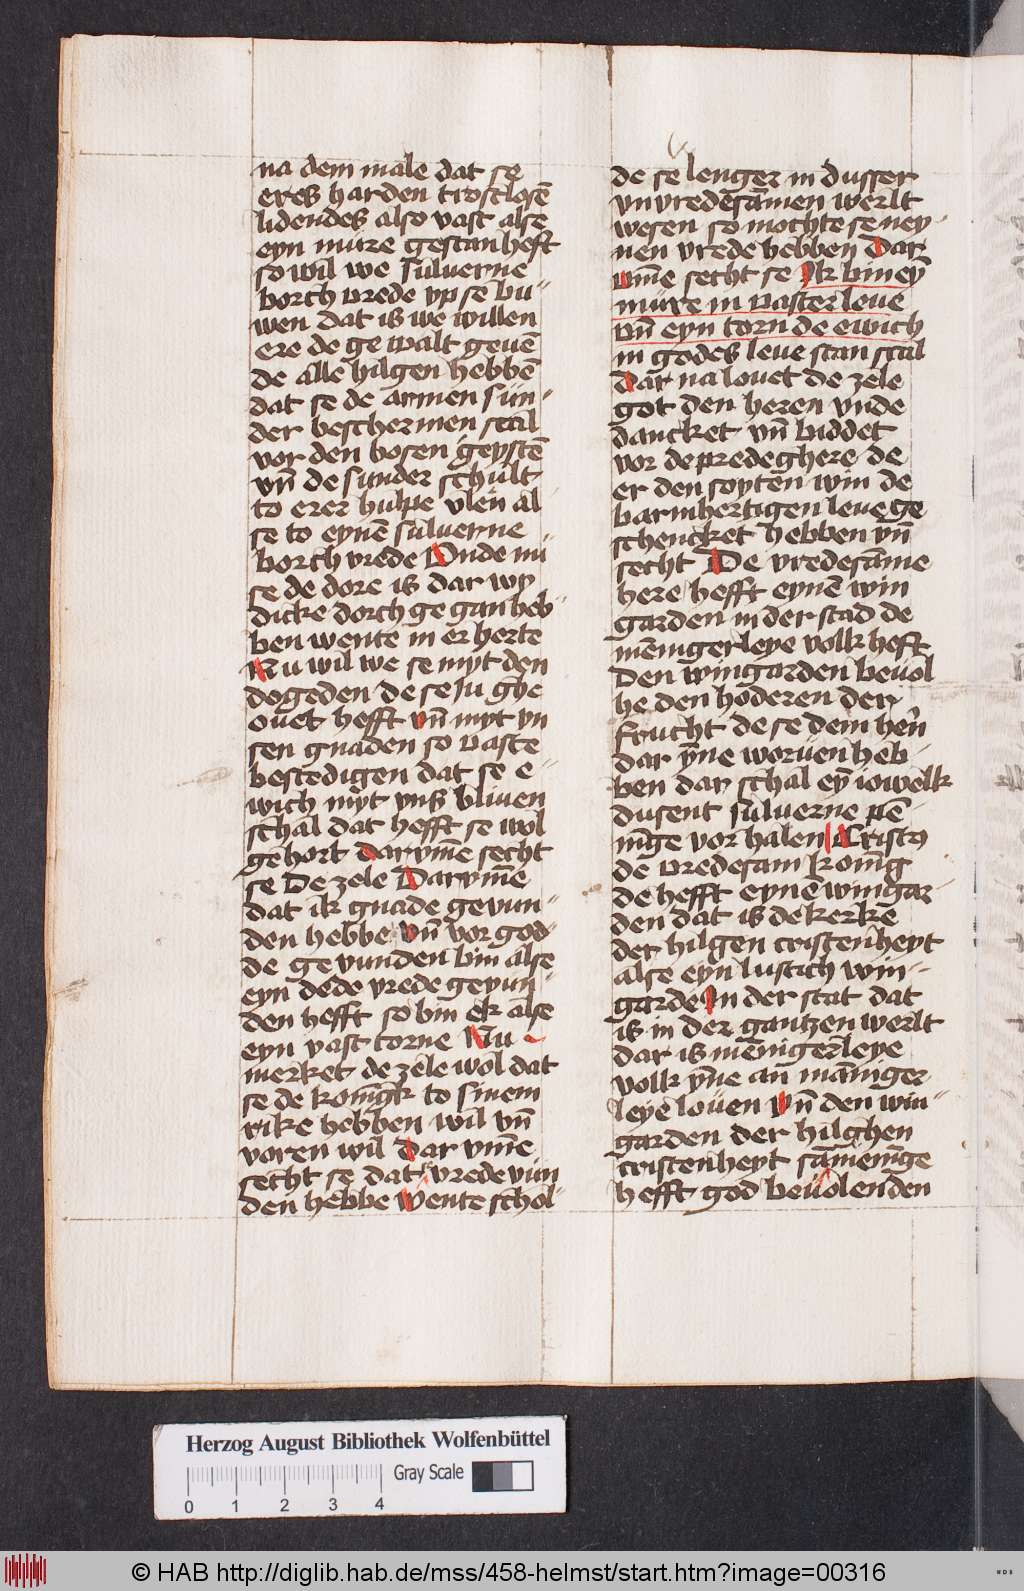 na dem male dat se
eres harden trostlosē
lidendes also vast alse
eyn mure gestan heft
so wil we suluerne
borch vrede vp se bu-
wen dat is we willen
ere de ge walt geuē
de alle hilgen hebbē
dat se de armen sun-
der beschermen scal
vor den bosen geystē
vn̄ de sunder schult
to erer hulpe vlen al
se to eynē suluerne
borch vrede Vnde nu
se de dore is dar wy
dicke dorch ge gan heb-
ben wente in er herte
Nu wil we se myt den
dogeden de se ju ghe
ouet hefft vn̄ myt vn
sen gnaden so vaste
bestedigen dat se e-
wich myt vns bliuen
schal dat hefft se wol
gehort darvm̄e secht
se De zele Darvm̄e
dat ik gnade gevun-
den hebbe vn̄ vor god-
de ge vunden bin alse
eyn dede vrede gevun-
den hefft so bin ek alse
eyn vast torne Nu
merket de zele wol dat
se de konīgk to sinem
rike hebben wil vn̄
voren wil Dar vm̄e
secht se dat vrede vun
den hebbe Wente schol-
de se lenger in dusser
vnvredesāmen werlt
wesen so mochte se ney-
nen vrede hebben Dar
vm̄e secht se Ik bin eȳ
mure in vaster leue
vn̄ eyn torn de ewich
in godes leue stan scal
Dar na louet de zele
got den heren vnde
dancket vn̄ biddet
vor de predeghere de
er den soyten win de
barmhertigen leue ge
schencket hebben vn̄
secht De vredesāme
here hefft eynē win
garden in der stad de
mēnigerleye volk heft
Den wingarden beuol
he den hoderen der
frucht de se dem hen̄
dar ȳne woruen heb-
ben dar schal eȳ iowelk
dusent suluerne pē-
nīge vor halen Cristꝰ
de vredesam konīg
de hefft eynē wingar-
den dat is de kerke
der hilgen cristenheyt
alse eyn lustich win-
garde In der stat dat
is in der gantzen werlt
dar is mēnigerleye
volk ȳne an māniger
leye louen Vn̄ den win-
garden der hilghen
cristenheyt sāmenīge
hefft god beuolen den
Herzog August Bibliothek Wolfenbüttel
Gray Scale
0 1 2 3 4
© HAB http://diglib.hab.de/mss/458-helmst/start.htm?image=00316